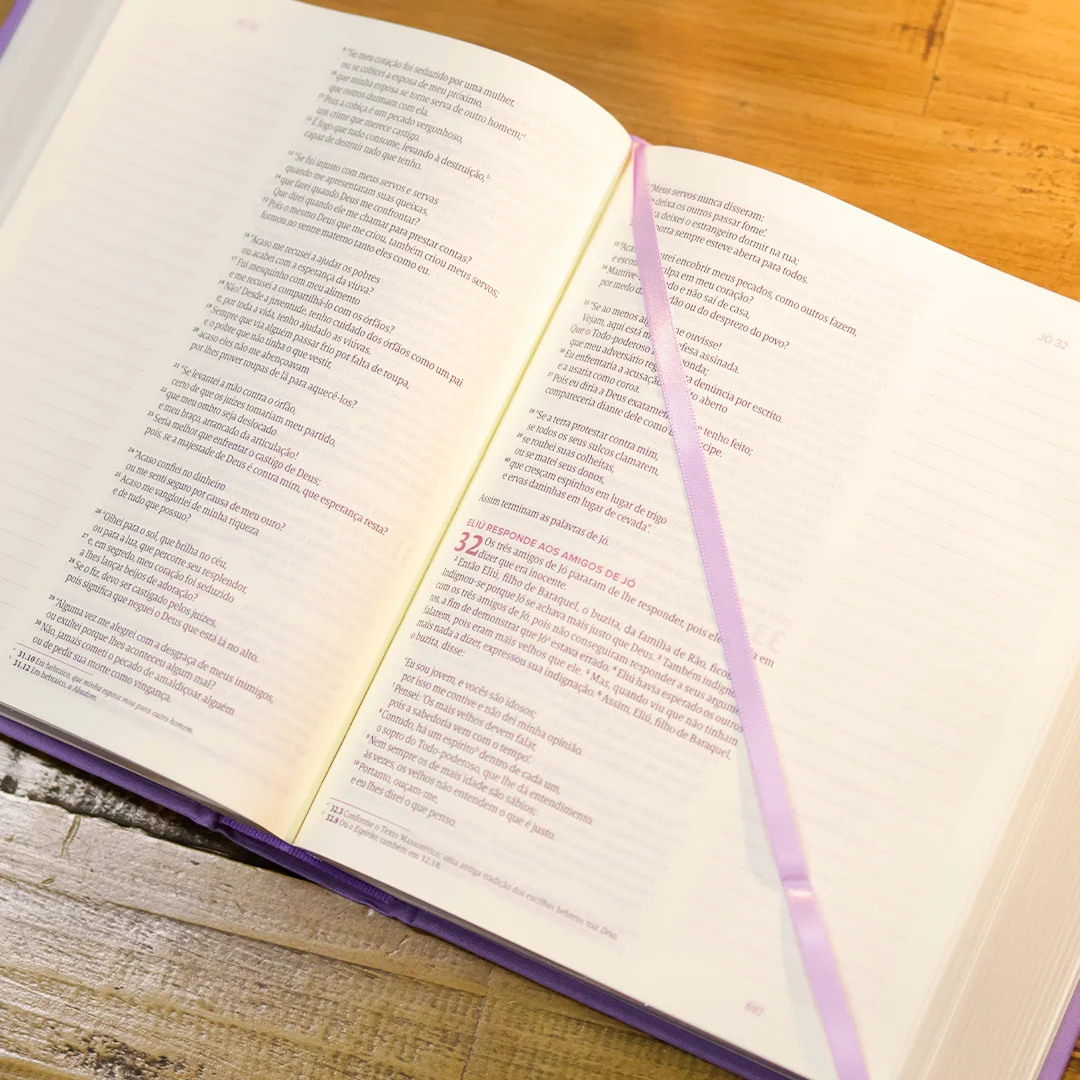 ⁹"Se meu coração foi seduzido por uma mulher,
ou se cobicei a esposa de meu próximo,
¹⁰que minha esposa se torne serva de outro homem;
que outros durmam com ela.
¹¹Pois a cobiça é um pecado vergonhoso,
um crime que merece castigo.
¹²É fogo que tudo consome, levando à destruição,
capaz de destruir tudo que tenho.
¹³"Se fui injusto com meus servos e servas
quando me apresentaram suas queixas,
¹⁴que farei quando Deus me confrontar?
Que direi quando ele me chamar para prestar contas?
¹⁵Pois o mesmo Deus que me criou, também criou meus servos;
formou no ventre materno tanto eles como eu.
¹⁶"Acaso me recusei a ajudar os pobres
ou acabei com a esperança da viúva?
¹⁷Fui mesquinho com meu alimento
e me recusei a compartilhá-lo com os órfãos?
¹⁸Não! Desde a juventude, tenho cuidado dos órfãos como um pai
e, por toda a vida, tenho ajudado as viúvas.
¹⁹Sempre que via alguém passar frio por falta de roupa,
e o pobre que não tinha o que vestir,
²⁰acaso eles não me abençoavam
por lhes prover roupas de lã para aquecê-los?
²¹"Se levantei a mão contra o órfão,
certo de que os juízes tomariam meu partido,
²²que meu ombro seja deslocado
e meu braço, arrancado da articulação!
²³Seria melhor que enfrentar o castigo de Deus;
pois, se a majestade de Deus é contra mim, que esperança resta?
²⁴"Acaso confiei no dinheiro
ou me senti seguro por causa de meu ouro?
²⁵Acaso me vangloriei de minha riqueza
e de tudo que possuo?
²⁶"Olhei para o sol, que brilha no céu,
ou para a lua, que percorre seu resplendor,
²⁷e, em segredo, meu coração foi seduzido
a lhes lançar beijos de adoração?
²⁸Se o fiz, devo ser castigado pelos juízes,
pois significa que neguei o Deus que está lá no alto.
²⁹"Alguma vez me alegrei com a desgraça de meus inimigos,
ou exultei porque lhes aconteceu algum mal?
³⁰Não, jamais cometi o pecado de amaldiçoar alguém
ou de pedir sua morte como vingança.
31.10 Em hebraico, que minha esposa moa para outro homem.
31.12 Em hebraico, a Abadom.
JÓ 32
"Meus servos nunca disseram:
deixa os outros passar fome'.
deixei o estrangeiro dormir na rua;
porta sempre esteve aberta para todos.
encobrir meus pecados, como outros fazem,
culpa em meu coração?
³⁴Mantive- do e não saí de casa,
por medo da dão ou do desprezo do povo?
³⁵"Se ao menos me ouvisse!
Vejam, aqui está fesa assinada.
Que o Todo-poderoso onda;
que meu adversário denúncia por escrito.
³⁶Eu enfrentaria a acusação to aberto
e a usaria como coroa.
³⁷Pois eu diria a Deus exatamente tenho feito;
compareceria diante dele como cipe.
³⁸"Se a terra protestar contra mim,
se todos os seus sulcos clamarem,
³⁹se roubei suas colheitas,
ou se matei seus donos,
⁴⁰que cresçam espinhos em lugar de trigo
e ervas daninhas em lugar de cevada".
Assim terminam as palavras de Jó.
ELIÚ RESPONDE AOS AMIGOS DE JÓ
32 Os três amigos de Jó pararam de lhe responder, pois ele em
dizer que era inocente.
²Então Eliú, filho de Baraquel, o buzita, da família de Rão, ficou
indignou-se porque Jó se achava mais justo que Deus. ³Também indign
com os três amigos de Jó, pois não conseguiram responder a seus argum
tos, a fim de demonstrar que Jó estava errado. ⁴Eliú havia esperado os outros
falarem, pois eram mais velhos que ele. ⁵Mas, quando viu que não tinham
mais nada a dizer, expressou sua indignação. ⁶Assim, Eliú, filho de Baraquel,
o buzita, disse:
"Eu sou jovem, e vocês são idosos;
por isso me contive e não dei minha opinião.
⁷Pensei: 'Os mais velhos devem falar,
pois a sabedoria vem com o tempo'.
⁸Contudo, há um espírito dentro de cada um,
o sopro do Todo-poderoso, que lhe dá entendimento.
⁹Nem sempre os de mais idade são sábios;
às vezes, os velhos não entendem o que é justo.
¹⁰Portanto, ouçam-me,
e eu lhes direi o que penso.
32.3 Conforme o Texto Massorético; uma antiga tradição dos escribas hebreus traz Deus.
32.8 Ou o Espírito; também em 32.18.
697